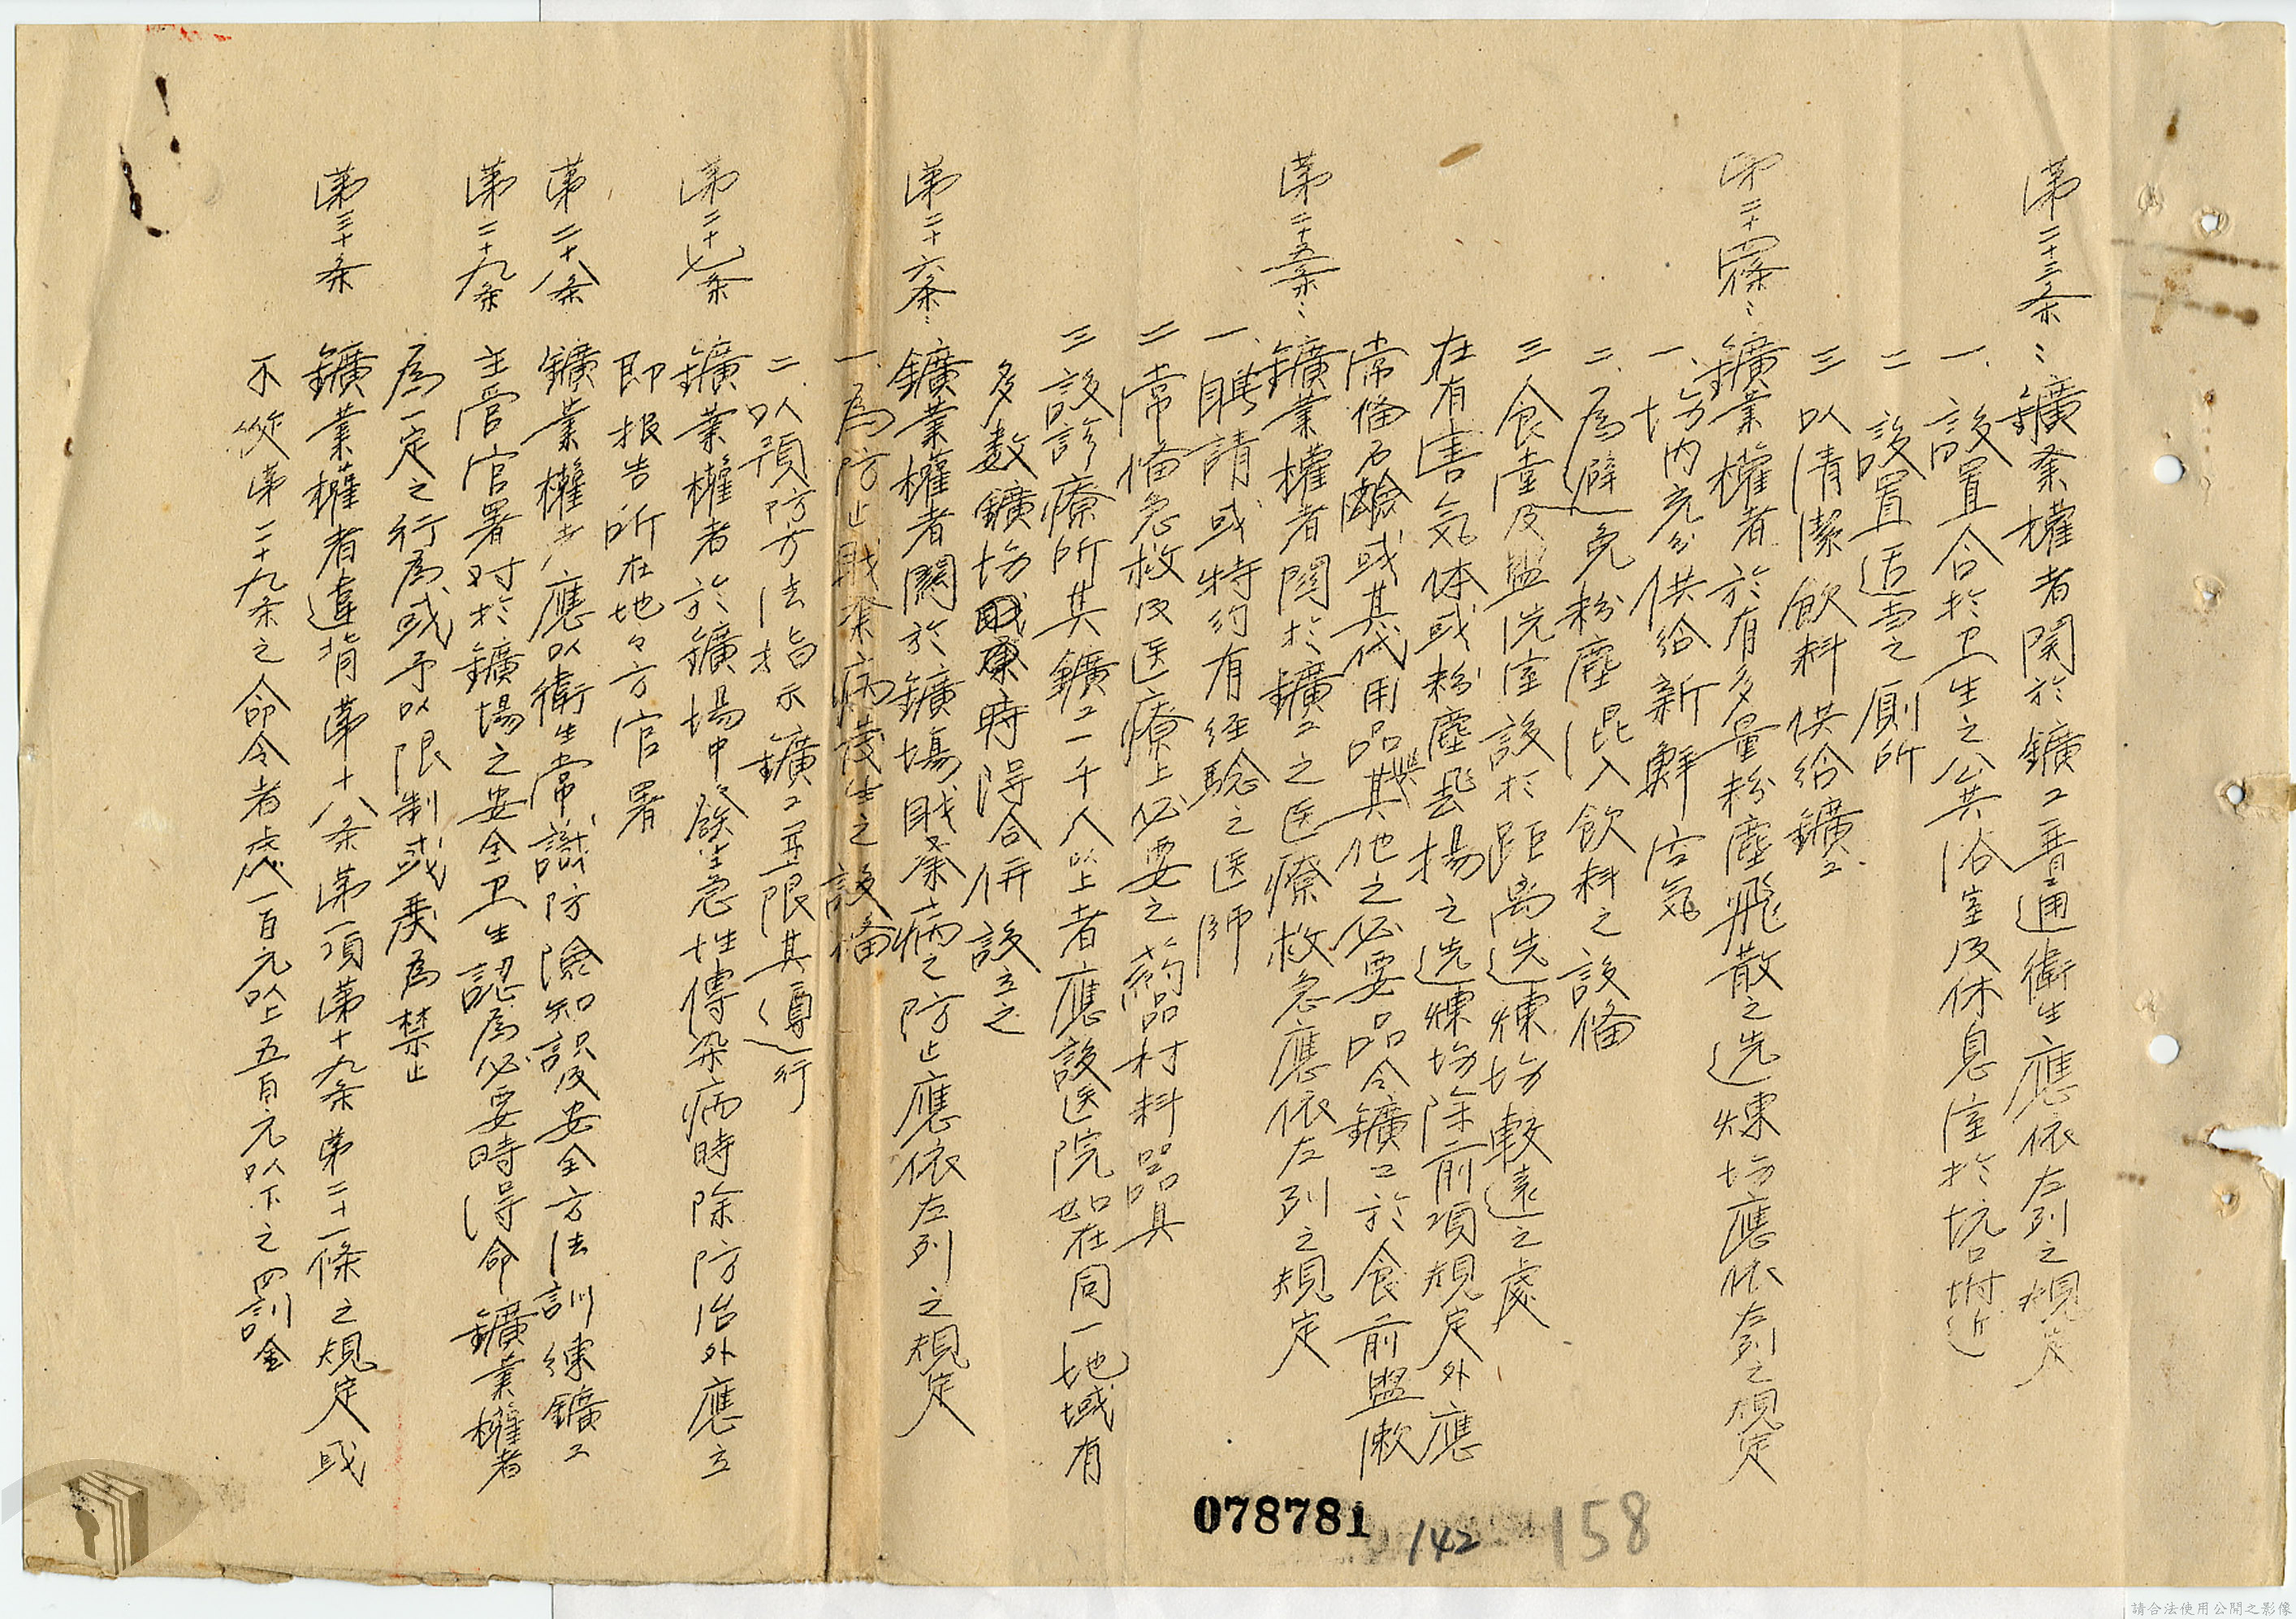 第二十三条：鑛業權者関於鑛工普通衛生應依左列之規定
一、設置合於卫生之公共浴室及休息室於坑口坿近
二 設置适当之厠所
三 以清潔飲料供给鑛工
第二十四條：鑛業權者於有多量粉塵飛散之选煉坊應依左列之規定
一、坊内充分供给新鮮空気
二、為避免粉塵混入飲料之設俻
三、食堂及盥洗室設於距离选煉坊較遠之處
在有害気体或粉塵飛揚之选煉坊除前項規定外應
常俻石鹸或其代用品與其他之必要品令鑛工於食前盥漱
第二十五条：鑛業權者関於鑛工之医療救急應依左列之規定
一、聘請或特約有经驗之医师
二 常俻急救及医療上必要之葯品材料器具
三 設診療所其鑛工一千人以上者應設医院如在同一地域有
多数鑛坊時得合併設立之
第二十六条：鑛業權者関於鑛場职業病之防止應依左列之規定
一、為防止职業病發生之設俻
二、以預防方法指示鑛工並限其遵行
第二十七条 鑛業權者於鑛場中發生急性傳染病時除防治外應立
即报告所在地々方官署
第二十八条 鑛業權者應以衛生常識防險知識及安全方法訓练鑛工
第二十九条 主管官署对於鑛場之安全卫生認為必要時得命鑛業權者
為一定之行為或予以限制或废為禁止
第三十条 鑛業權者違背第十八条第一項第十九条第二十一條之規定或
不從第二十九条之命令者處一百元以上五百元以下之罰金
078781
142
158
請合法使用公開之影像